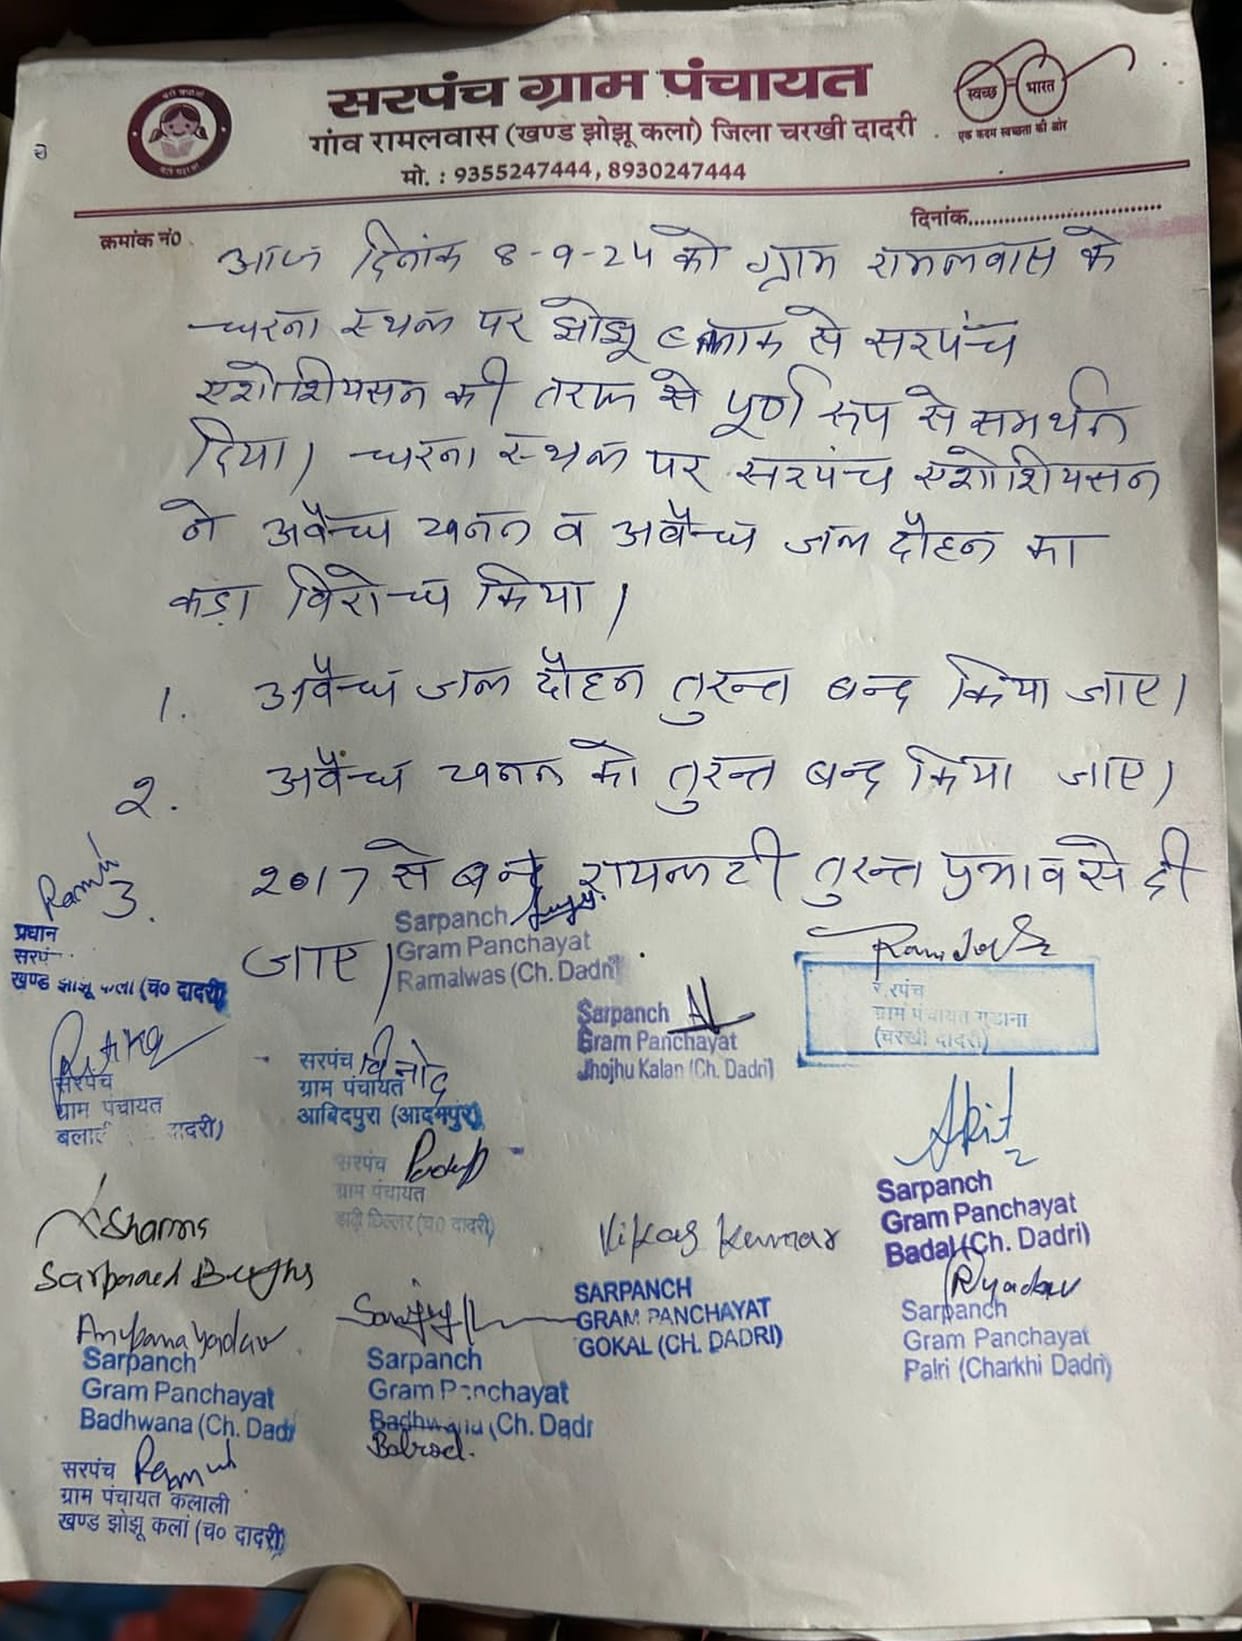 सरपंच ग्राम पंचायत
गांव रामलवास (खण्ड झोझू कला) जिला चरखी दादरी
मो. : 9355247444, 8930247444
स्वच्छ भारत
एक कदम स्वच्छता की ओर
क्रमांक नं0
दिनांक
आज दिनांक 8-9-24 को ग्राम रामलवास के
धरना स्थल पर झोझू से सरपंच
एशोशियसन की तरफ से पूर्ण रूप से समर्थन
दिया। धरना स्थल पर सरपंच एशोशियसन
ने अवैध खनन व अवैध जल दौहन का
कड़ा विरोध किया।
1. अवैध जल दौहन तुरन्त बन्द किया जाए।
2. अवैध खनन को तुरन्त बन्द किया जाए।
3. 2017 से बन्द रायल्टी तुरन्त प्रभाव से दी
जाए।
प्रधान
खण्ड झोझू कला (च० दादरी)
Sarpanch
Gram Panchayat
Ramalwas (Ch. Dadri)
Sarpanch
Gram Panchayat
Jhojhu Kalan (Ch. Dadri)
ग्राम पंचायत
(चरखी दादरी)
सरपंच
ग्राम पंचायत
दादरी)
सरपंच विनोद
ग्राम पंचायत
आबिदपुरा (आदमपुर)
सरपंच
ग्राम पंचायत
(च० दादरी)
Sharma
Vikas Kumar
SARPANCH
GRAM PANCHAYAT
GOKAL (CH. DADRI)
Ankit
Sarpanch
Gram Panchayat
Badal (Ch. Dadri)
Yadav
Sarpanch
Gram Panchayat
Palri (Charkhi Dadri)
Yadav
Sarpanch
Gram Panchayat
Badhwana (Ch. Dadri
Sarpanch
Gram Panchayat
Badhwana (Ch. Dadri
Balrod.
सरपंच
ग्राम पंचायत कलाली
खण्ड झोझू कलां (च० दादरी)